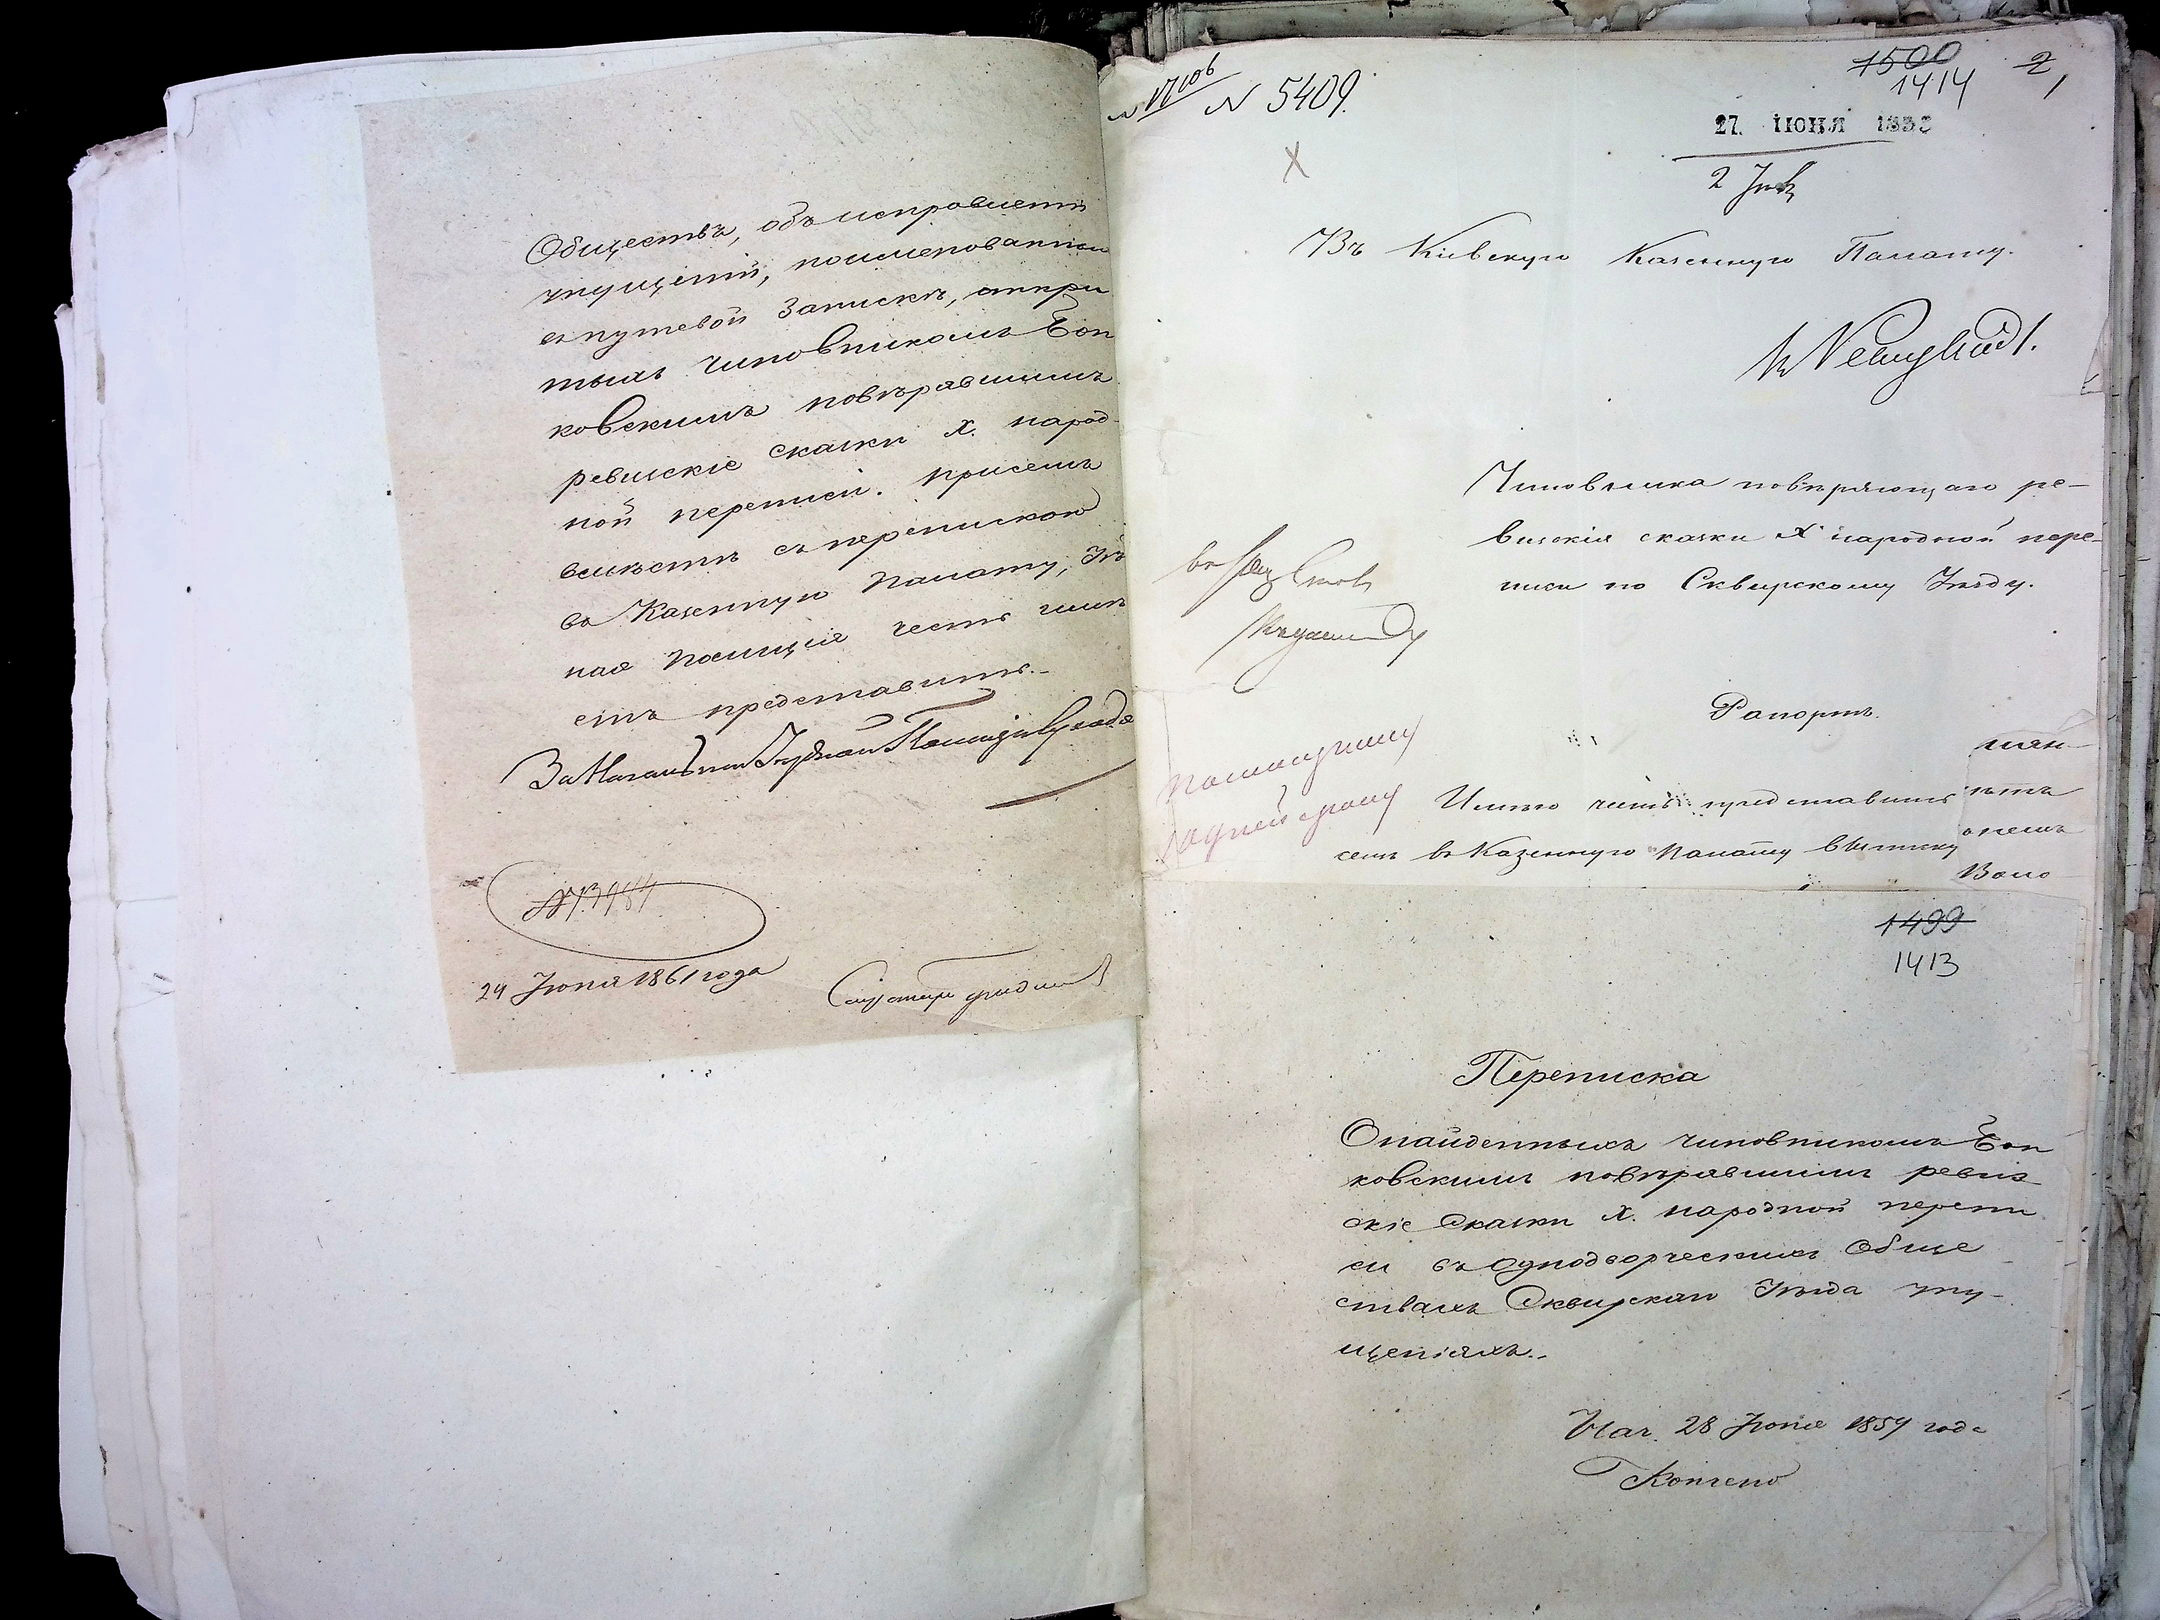 Обществъ, объ исправленіи
упущеній, поименованныхъ
въ путевой Запискѣ, откры
тыхъ чиновникомъ Бон
ковскимъ повѣрявшимъ
ревизскіе сказки X. народ-
ной переписи. При семъ
вмѣстѣ съ перепискою
въ Казенную Палату,
ная Полиція честь имѣ
етъ представить.
24 Іюня 1861 года
N 5409.
1500
1414
2
27. ІЮНЯ
Въ Кіевскую Казенную Палату.
Чиновника повѣряющаго ре-
визскія сказки X народной пере-
писи по Сквирскому Уѣзду.
Рапортъ.
Имѣю честь представить
семъ въ Казенную Палату выписку
1499
1413
Переписка
О найденныхъ чиновникомъ Бон
ковскимъ повѣрявшимъ ревиз
скіе сказки X. народной перепи
си въ однодворческихъ обще
ствахъ Сквирскаго Уѣзда упу-
щеніяхъ.
Нач. 28 Іюня 1859 года
Кончено